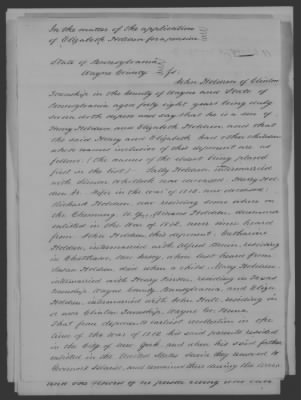 In the matter of the application
of Elizabeth Holden for a pension
State of Pennsylvania
Wayne County ss.
John Holden of Clinton
Township in the County of Wayne and State of
Pennsylvania aged forty eight years being duly
sworn doth depose and say that he is a son of
Henry Holden and Elizabeth Holden and that
the said Henry and Elizabeth had other children
whose names inclusive of this deponent are as
follows: (the names of the eldest being placed
first in the list) Sally Holden, intermarried
with
in the War of 1812, now deceased;
Richard Holden, now residing some where on
the Chemung N. Y.; Holden, unmarried
enlisted in the War of 1812, and never heard
from John Holden, this deponent; Catharine
Holden, intermarried with Alfred residing
in Chatham, New Jersey, when last heard from
Susan Holden died when a child; Mary Holden
intermarried with Henry residing in Texas
Township, Wayne County, Pennsylvania, and Eliza
Holden, intermarried with John Hull, residing in
Clinton Township, Wayne Co. Penna.
That from deponents earliest recollection at the
time of the war of 1812 his said parents resided
in the City of New York, and when his said father
enlisted in the United States Service they moved to
Governor's Island, and remained there during the war
and one or of no person living who can